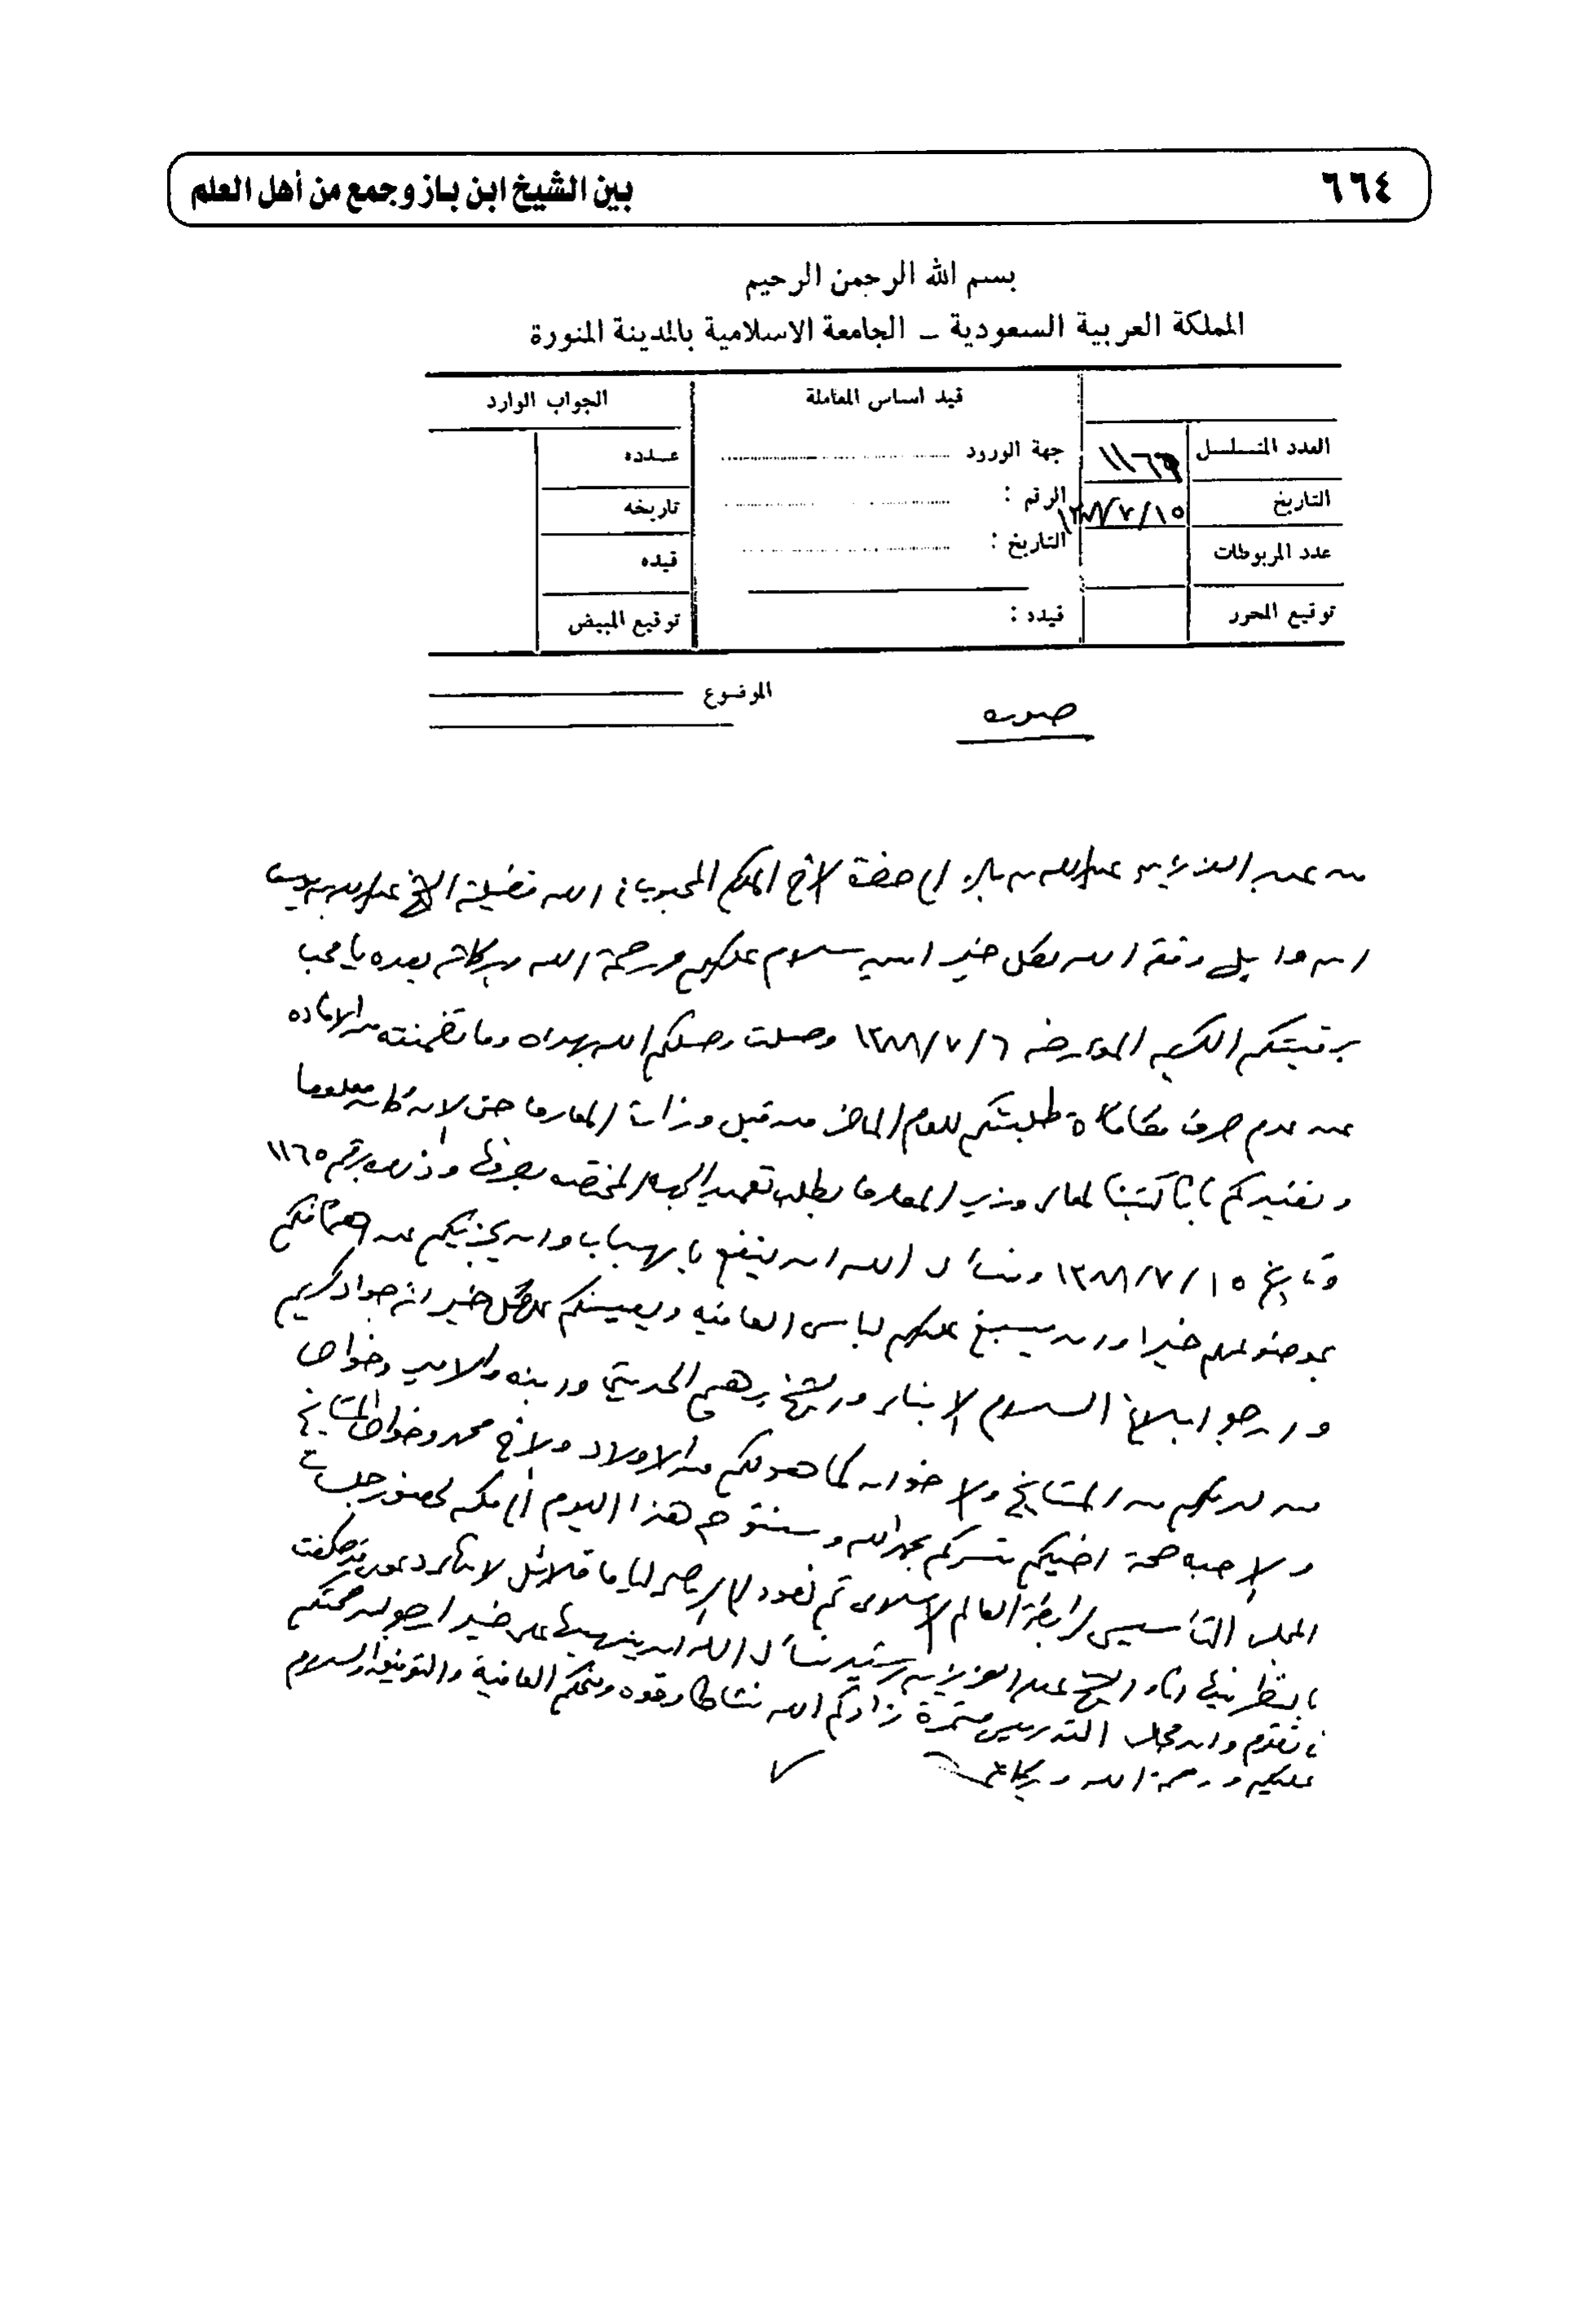 ٦٦٤
بين الشيخ ابن باز وجمع من أهل العلم
بسم الله الرحمن الرحيم
المملكة العربية السعودية – الجامعة الاسلامية بالمدينة المنورة
قيد اساس المعاملة
الجواب الوارد
العدد المتسلسل
جهة الورود
عدده
التاريخ ١٥/٧/١٣٨٨
الرقم :
تاريخه
عدد المربوطات
التاريخ :
قيده
توقيع المحرر
قيده :
توقيع المبيض
الموضوع
صوره
من عبد العزيز بن عبد الله بن باز الى حضرة الأخ المكرم المحبوب في الله فضيلة الشيخ عبد الله بن يوسف
ابن وابل وفقه الله لكل خير امين سلام عليكم ورحمة الله وبركاته بعده يا محب
برقيتكم الكريمه المؤرخه ٦/٧/١٣٨٨ وصلت وصلكم الله بهداه وما تضمنته من الافاده
عن عدم صرف مكافاة طلبتكم للعام الماضي من قبل وزارة المعارف حتى الان كان معلوما
ونفيدكم باننا كتبنا لمعالي وزير المعارف بطلب تعميد الجهه المختصه بصرفها وذلك برقم ١١٦٥
وتاريخ ١٥/٧/١٣٨٨ ونسأل الله ان ينفع بالاسباب وان يجزيكم عن اهتمامكم
بموضوعهم خيرا وان يسبغ عليكم لباس العافيه ويعينكم على كل خير انه جواد كريم
وارجو ابلاغ السلام الابناء والشيخ ابرهيم الحديثي وابنه والامير وخواص
من لديكم من المشايخ والاخوان كما هو لكم من الاولاد والاخ محمد وخواص المشايخ
والاحبه صحة اخيكم تسركم بحمد الله وسنتوجه هذا اليوم الى مكه لحضور جلسات
المجلس التأسيسي لرابطة العالم الاسلامي ثم نعود الى الرياض لياما قلائل لانهاء دعوى قد كلفت
بالنظر فيها انا والشيخ عبد العزيز بن رشيد نسأل الله ان ينهيها على خير ارجو ان صحتكم
في تقدم وان مجالس التدريس مستمرة زادكم الله نشاطا وقوه ومنحكم العافية والتوفيق والسلام
عليكم ورحمة الله وبركاته